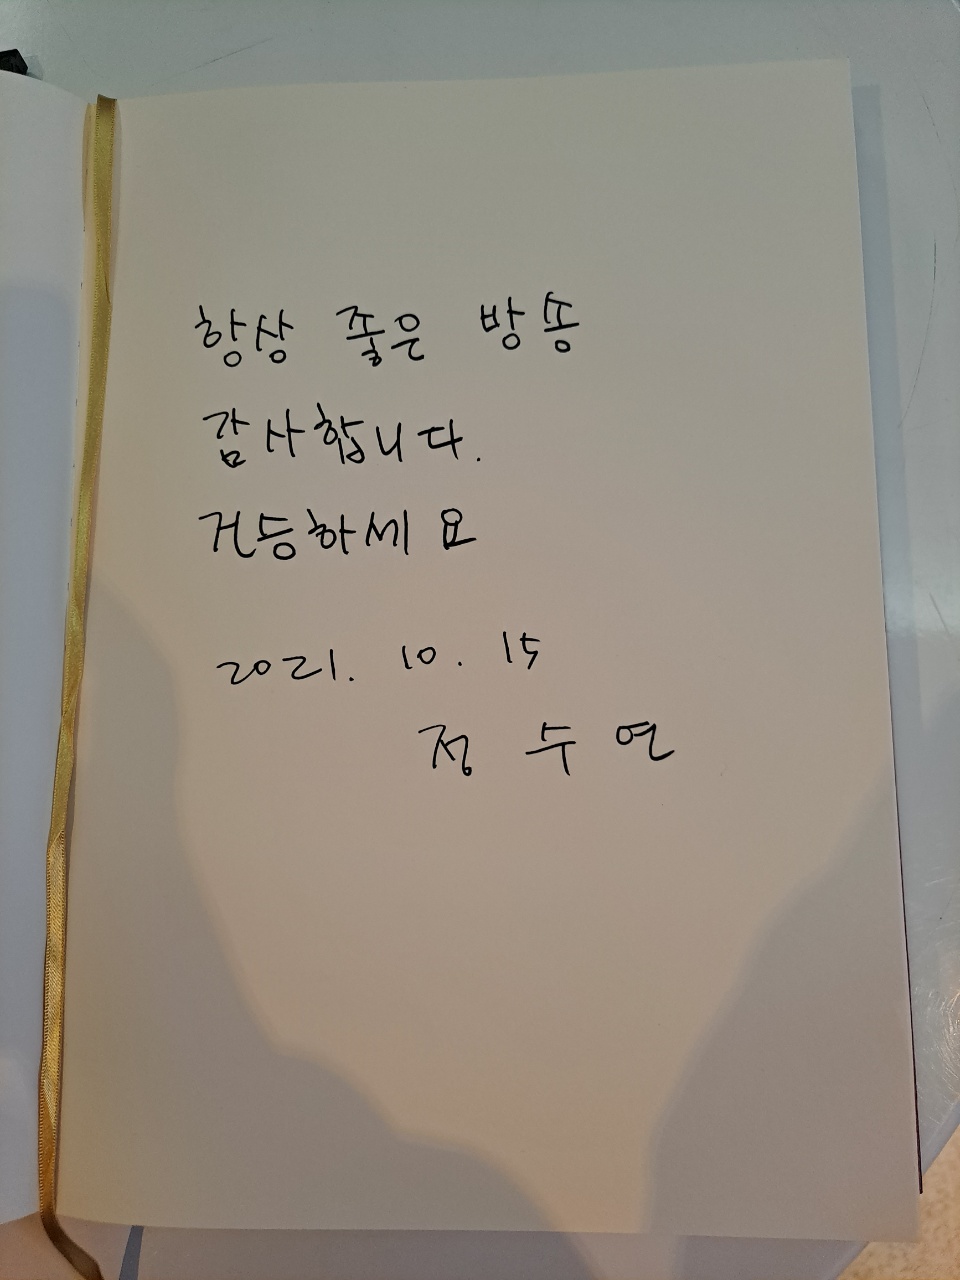 항상 좋은 방송
감사합니다.
건승하세요
2021. 10. 15
정 수 연